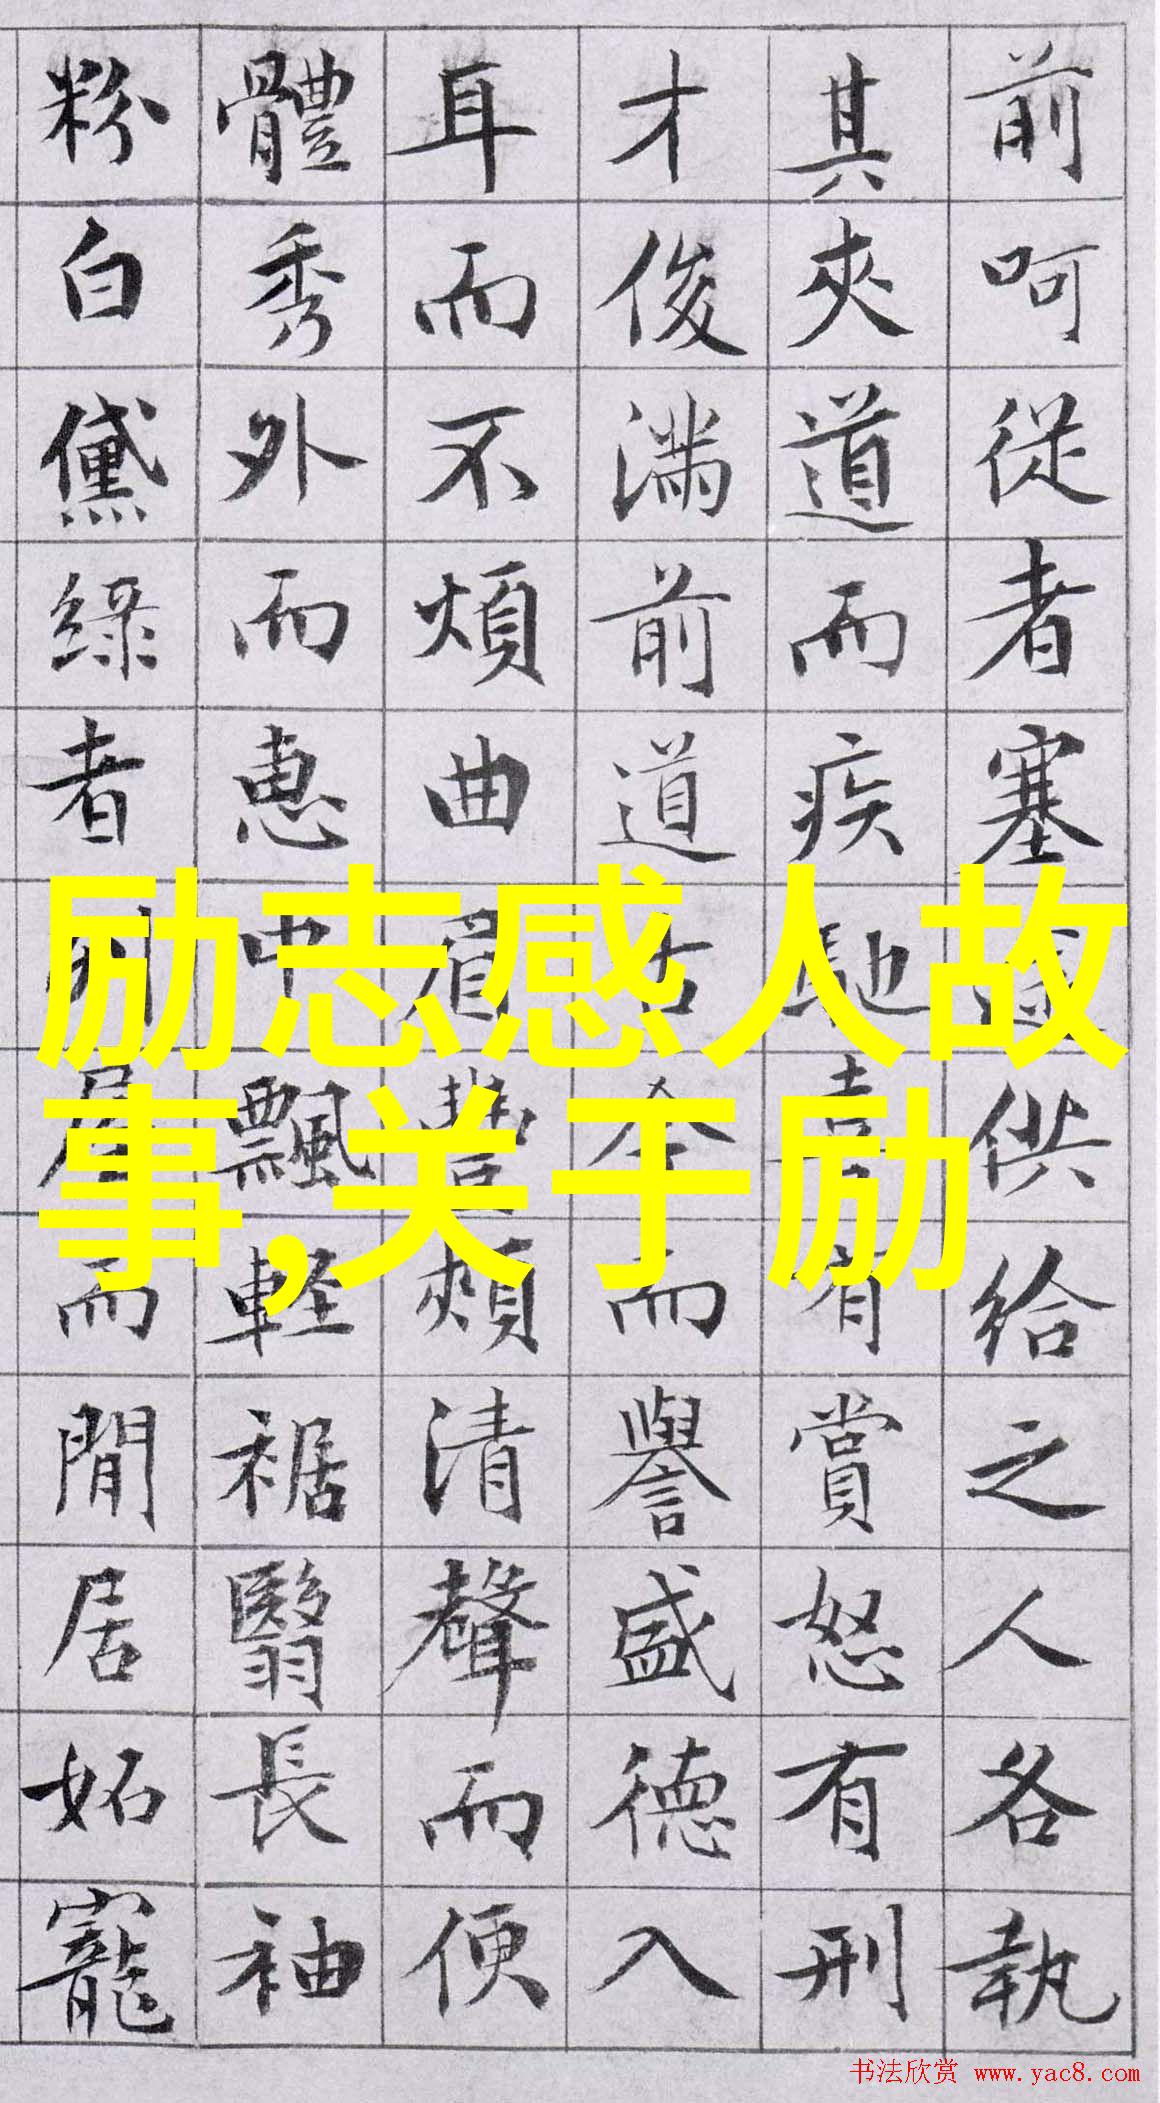 前呵從者塞途供給之人各執
其夾道而疾馳喜有賞怒有刑
才俊满前道古今而譽盛德入
耳而不煩曲眉豐頰清聲而便
體秀外而惠中飄輕裾翳長袖
粉白黛綠者列屋而閒居妬寵
励志感人故
事,关于励
书法欣赏 www.yac8.com